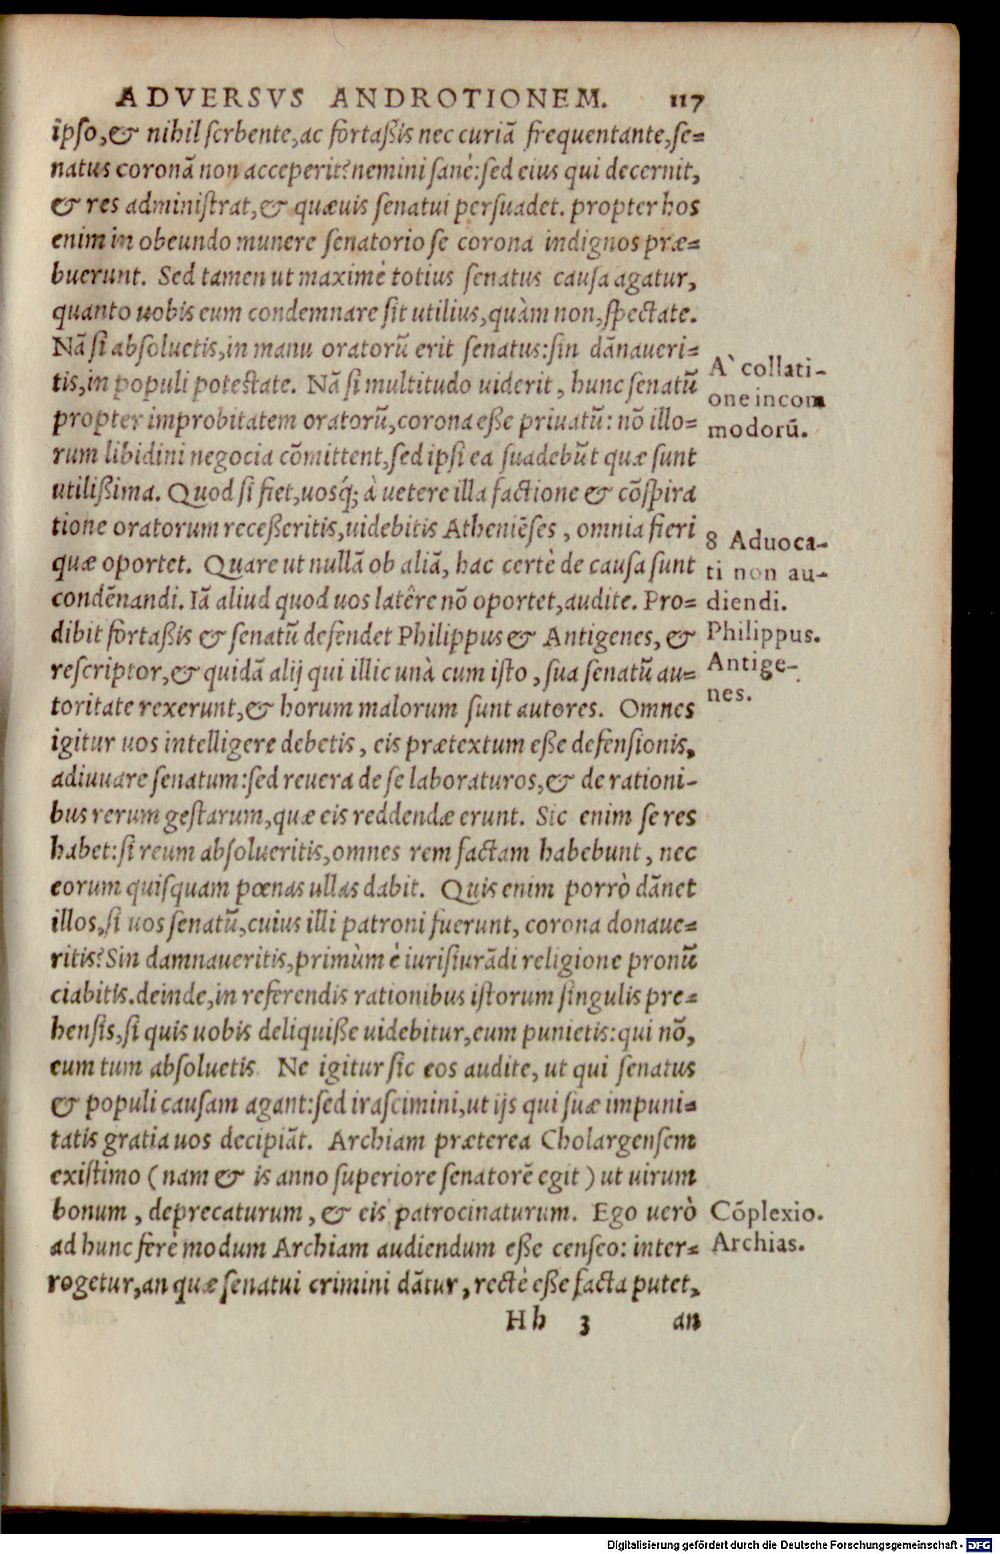 ADVERSVS ANDROTIONEM. 117
ipso,& nihil scrbente,ac fortaßis nec curiā frequentante,se=
natus coronā non acceperit?nemini sanè:sed eius qui decernit,
& res administrat,& quæuis senatui persuadet. propter hos
enim in obeundo munere senatorio se corona indignos præ=
buerunt. Sed tamen ut maximè totius senatus causa agatur,
quanto uobis eum condemnare sit utilius,quàm non,spectate.
Nā si absoluetis,in manu oratorū erit senatus:sin dānaueri=
tis,in populi potestate. Nā si multitudo uiderit, hunc senatū
propter improbitatem oratorū,corona eße priuatū: nō illo=
rum libidini negocia cōmittent,sed ipsi ea suadebūt quæ sunt
utilißima. Quod si fiet,uosq́; à uetere illa factione & cōspira
tione oratorum receßeritis,uidebitis Atheniēses, omnia fieri
quæ oportet. Quare ut nullā ob aliā, hac certè de causa sunt
condēnandi. Iā aliud quod uos latêre nō oportet,audite. Pro=
dibit fortaßis & senatū defendet Philippus & Antigenes, &
rescriptor,& quidā alij qui illic unà cum isto, sua senatū au=
toritate rexerunt,& horum malorum sunt autores. Omnes
igitur uos intelligere debetis, eis prætextum eße defensionis,
adiuuare senatum:sed reuera de se laboraturos,& de rationi-
bus rerum gestarum,quæ eis reddendæ erunt. Sic enim se res
habet:si reum absolueritis,omnes rem factam habebunt, nec
eorum quisquam pœnas ullas dabit. Quis enim porrò dānet
illos,si uos senatū,cuius illi patroni fuerunt, corona donaue=
ritis?Sin damnaueritis,primùm è iurisiurādi religione pronū
ciabitis.deinde,in referendis rationibus istorum singulis pre=
hensis,si quis uobis deliquiße uidebitur,eum punietis:qui nō,
eum tum absoluetis. Ne igitur sic eos audite, ut qui senatus
& populi causam agant:sed irascimini,ut ijs qui suæ impuni=
tatis gratia uos decipiāt. Archiam præterea Cholargensem
existimo (nam & is anno superiore senatorē egit) ut uirum
bonum, deprecaturum, & eis patrocinaturum. Ego uerò
ad hunc ferè modum Archiam audiendum eße censeo: inter=
rogetur,an quæ senatui crimini dātur, rectè eße facta putet,
Hh 3 an
A` collati-
one incom
modorū.
8 Aduoca-
ti non au-
diendi.
Philippus.
Antige-
nes.
Cōplexio.
Archias.
Digitalisierung gefördert durch die Deutsche Forschungsgemeinschaft - DFG